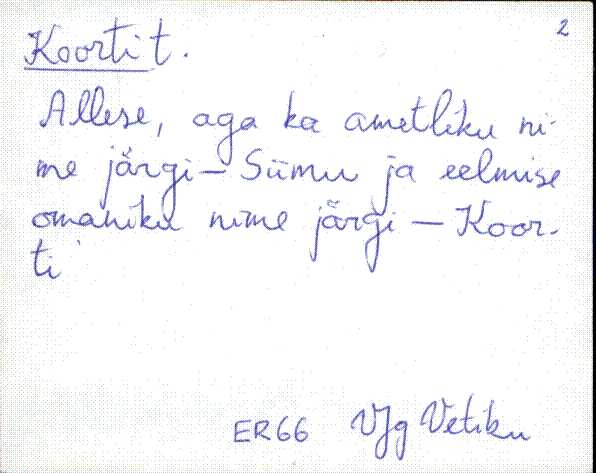 2
Koorti t.
Allese, aga ka ametliku ni-
me järgi – Siimu ja eelmise
omaniku nime järgi – Koor-
ti
ER66 VJg Vetiku